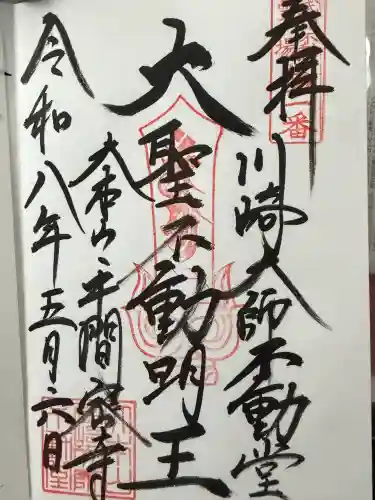 奉拝
川崎大師不動堂
大聖不動明王
大本山平間寺
令和八年五月六日